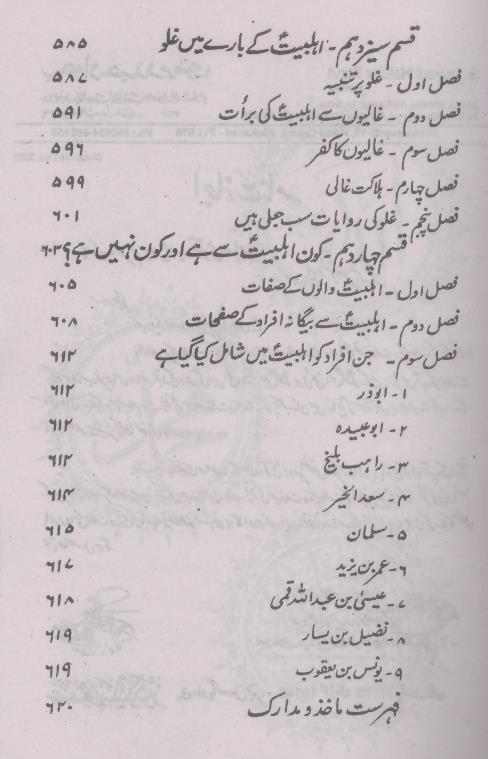 قسم سیزدہم - اہلبیتؑ کے بارے میں غلو ۵۸۵
فصل اول - غلو پر تنبیہ ۵۸۷
فصل دوم - غالیوں سے اہلبیتؑ کی برأت ۵۹۱
فصل سوم - غالیوں کا کفر ۵۹۶
فصل چہارم - ہلاکت غالی ۵۹۹
فصل پنجم - غلو کی روایات سب جعلی ہیں ۶۰۱
قسم چہاردہم - کون اہلبیتؑ سے ہے اور کون نہیں ہے؟ ۶۰۳
فصل اول - اہلبیتؑ والوں کے صفات ۶۰۵
فصل دوم - اہلبیتؑ سے بیگانہ افراد کے صفحات ۶۰۸
فصل سوم - جن افراد کو اہلبیتؑ میں شامل کیا گیا ہے ۶۱۲
۱- ابوذر ۶۱۲
۲- ابو عبیدہ ۶۱۲
۳- راہب بلیخ ۶۱۲
۴- سعد الخیر ۶۱۴
۵- سلمان ۶۱۵
۶- عمر بن یزید ۶۱۷
۷- عیسیٰ بن عبد اللہ قمی ۶۱۸
۸- فضیل بن یسار ۶۱۹
۹- یونس بن یعقوب ۶۱۹
فہرست ماخذ و مدارک ۶۲۰